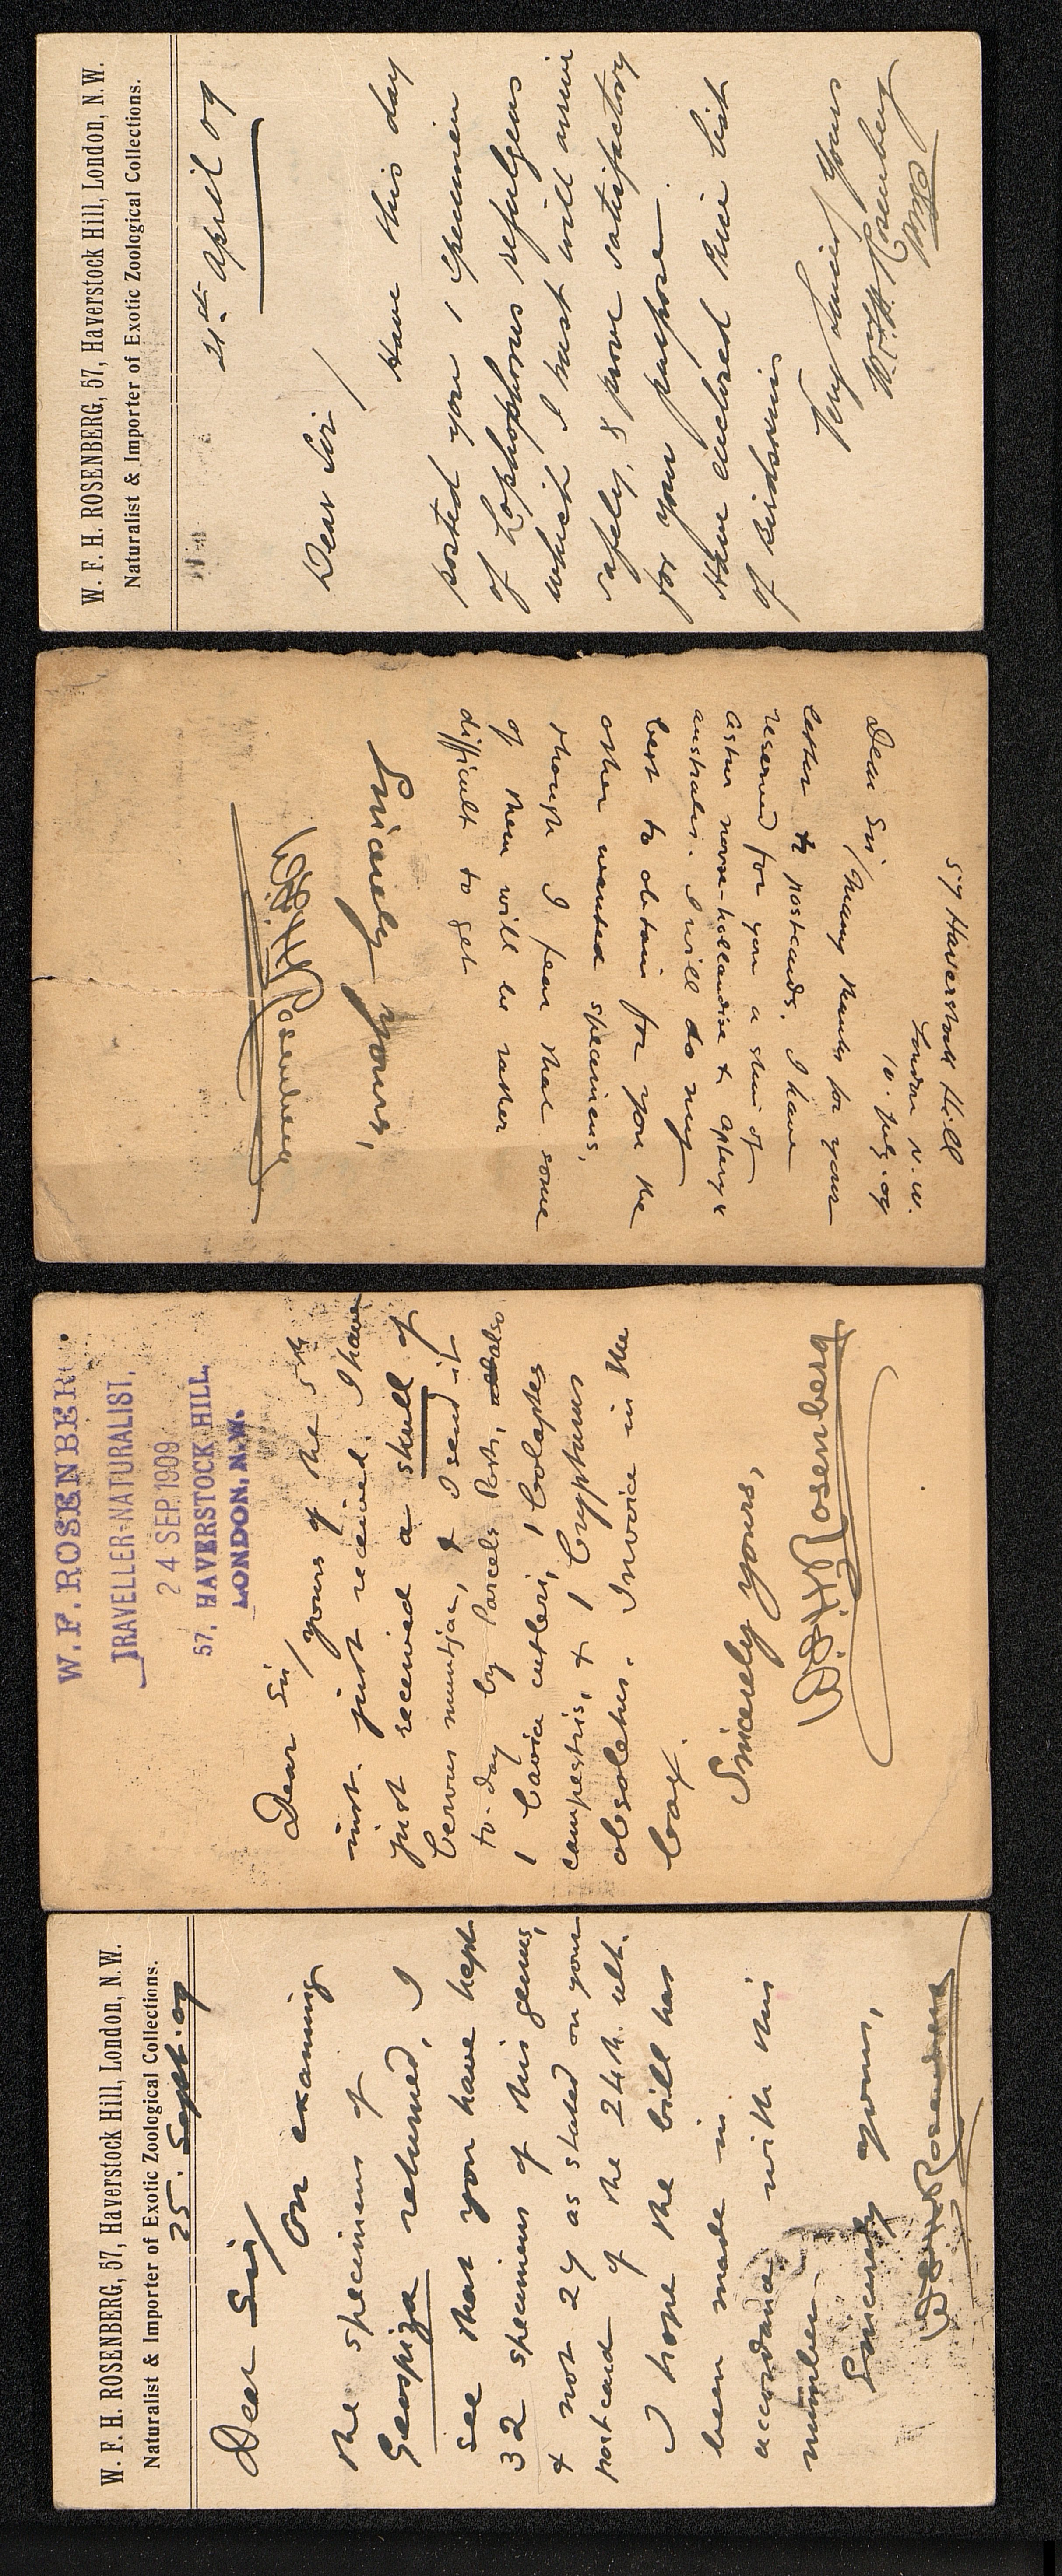 W. F. H. ROSENBERG, 57, Haverstock Hill, London, N.W.
Naturalist & Importer of Exotic Zoological Collections.
21st April 09
Dear Sir/
Have this day
posted you 1 specimen
of Lophophorus refulgens
which I trust will arrive
safely, & prove satisfactory
for your purpose.
Have enclosed price list
of birdskins
Very truly yours
W.F.H. Rosenberg
57 Haverstock Hill
London N.W.
10. July. 09
Dear Sir/ Many thanks for your
letter & postcards. I have
reserved for you a skin of
Astur novae-hollandiae & Apteryx
australis. I will do my
best to obtain for you the
other wanted specimens,
though I fear that some
of them will be rather
difficult to get
Sincerely yours,
W.F.H. Rosenberg
W. F. ROSENBERG.
TRAVELLER-NATURALIST,
24 SEP. 1909
57, HAVERSTOCK HILL,
LONDON, N.W.
Dear Sir/ yours of the 5th
inst. just received. I have
just received a skull of
Cervus muntjac, & I send it
to-day by Parcels Post, also
1 Cavia cutleri, 1 Colaptes
campestris, & 1 Crypturus
obsoletus. Invoice in the
box.
Sincerely yours,
W.F.H. Rosenberg
W. F. H. ROSENBERG, 57, Haverstock Hill, London, N.W.
Naturalist & Importer of Exotic Zoological Collections.
25. Sept. 09
Dear Sir/
On examining
the specimens of
Geospiza returned, I
see that you have kept
32 specimens of this genus,
& not 27 as stated on your
postcard of the 24th ult.
I hope the bill has
been made in
accordance with this
number.
Sincerely yours,
W.F.H. Rosenberg